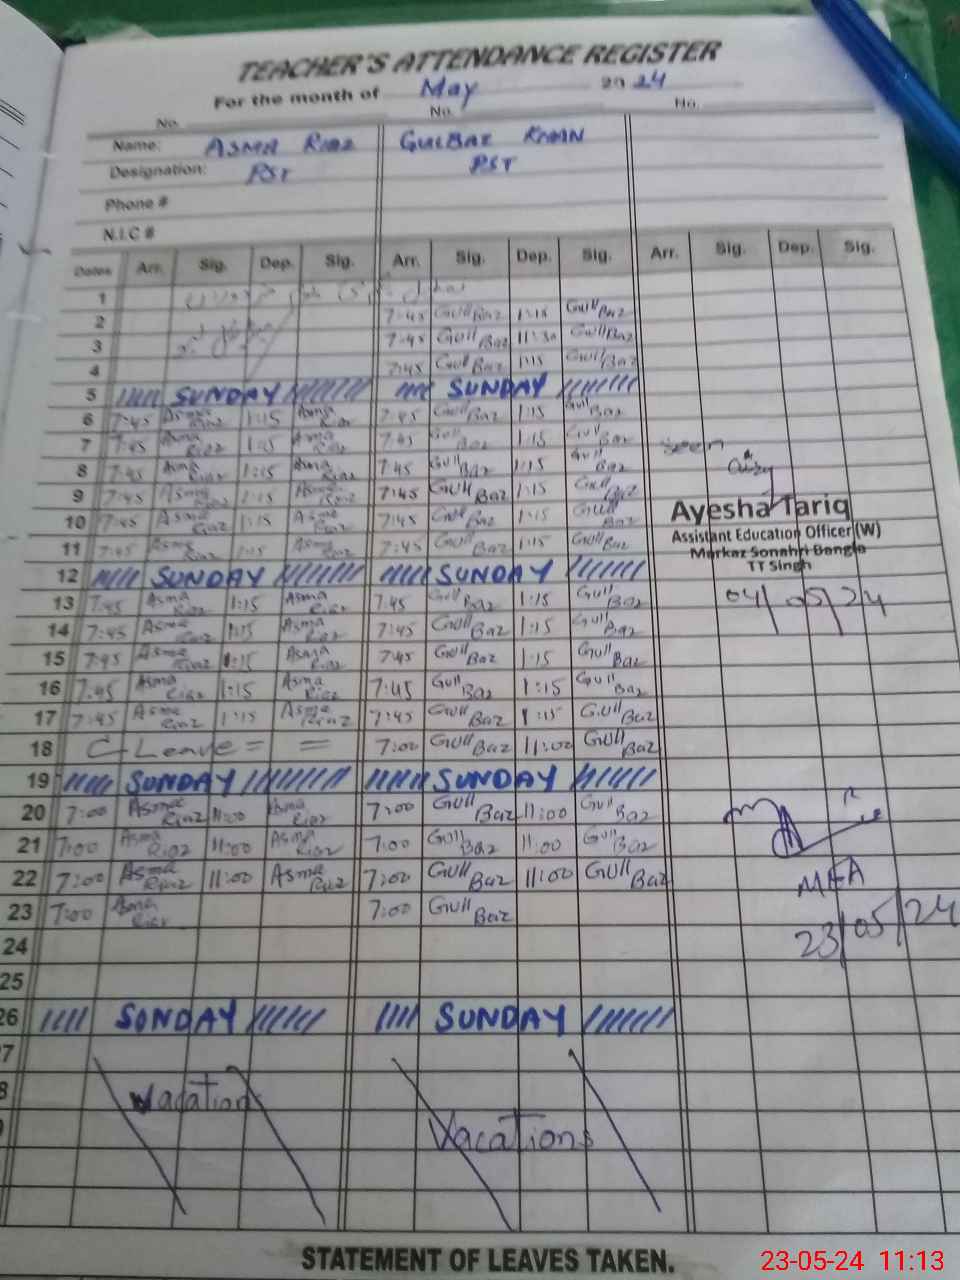 TEACHER'S ATTENDANCE REGISTER
For the month of May 2024
No. No. No.
Name: ASMA Riaz GULBAZ KHAN
Designation: PST PST
Phone #
N.I.C #
Dates Arr. Sig. Dep. Sig. Arr. Sig. Dep. Sig. Arr. Sig. Dep. Sig.
1
2 7:45 Gull Baz 1:15 Gull Baz
3 7:45 Gull Baz 11:30 Gull Baz
4 7:45 Gull Baz 1:15 Gull Baz
5 SUNDAY SUNDAY
6 7:45 Asma Riaz 1:15 Asma Riaz 7:45 Gull Baz 1:15 Gull Baz
7 7:45 Asma Riaz 1:15 Asma Riaz 7:45 Gull Baz 1:15 Gull Baz
seen
8 7:45 Asma Riaz 1:15 Asma Riaz 7:45 Gull Baz 1:15 Gull Baz
9 7:45 Asma Riaz 1:15 Asma Riaz 7:45 Gull Baz 1:15 Gull Baz
10 7:45 Asma Riaz 1:15 Asma Riaz 7:45 Gull Baz 1:15 Gull Baz
Ayesha Tariq
Assistant Education Officer (W)
11 7:45 Asma Riaz 1:15 Asma Riaz 7:45 Gull Baz 1:15 Gull Baz
Markaz Sonahri Bangla
TT Singh
12 SUNDAY SUNDAY
13 7:45 Asma Riaz 1:15 Asma Riaz 7:45 Gull Baz 1:15 Gull Baz
04/05/24
14 7:45 Asma Riaz 1:15 Asma Riaz 7:45 Gull Baz 1:15 Gull Baz
15 7:45 Asma Riaz 1:15 Asma Riaz 7:45 Gull Baz 1:15 Gull Baz
16 7:45 Asma Riaz 1:15 Asma Riaz 7:45 Gull Baz 1:15 Gull Baz
17 7:45 Asma Riaz 1:15 Asma Riaz 7:45 Gull Baz 1:15 Gull Baz
18 C-Leave = = 7:00 Gull Baz 11:00 Gull Baz
19 SUNDAY SUNDAY
20 7:00 Asma Riaz 11:00 Asma Riaz 7:00 Gull Baz 11:00 Gull Baz
21 7:00 Asma Riaz 11:00 Asma Riaz 7:00 Gull Baz 11:00 Gull Baz
22 7:00 Asma Riaz 11:00 Asma Riaz 7:00 Gull Baz 11:00 Gull Baz
MEA
23 7:00 Asma Riaz 7:00 Gull Baz
23/05/24
24
25
26 SUNDAY SUNDAY
7
8 Vacation
Vacations
STATEMENT OF LEAVES TAKEN.
23-05-24 11:13